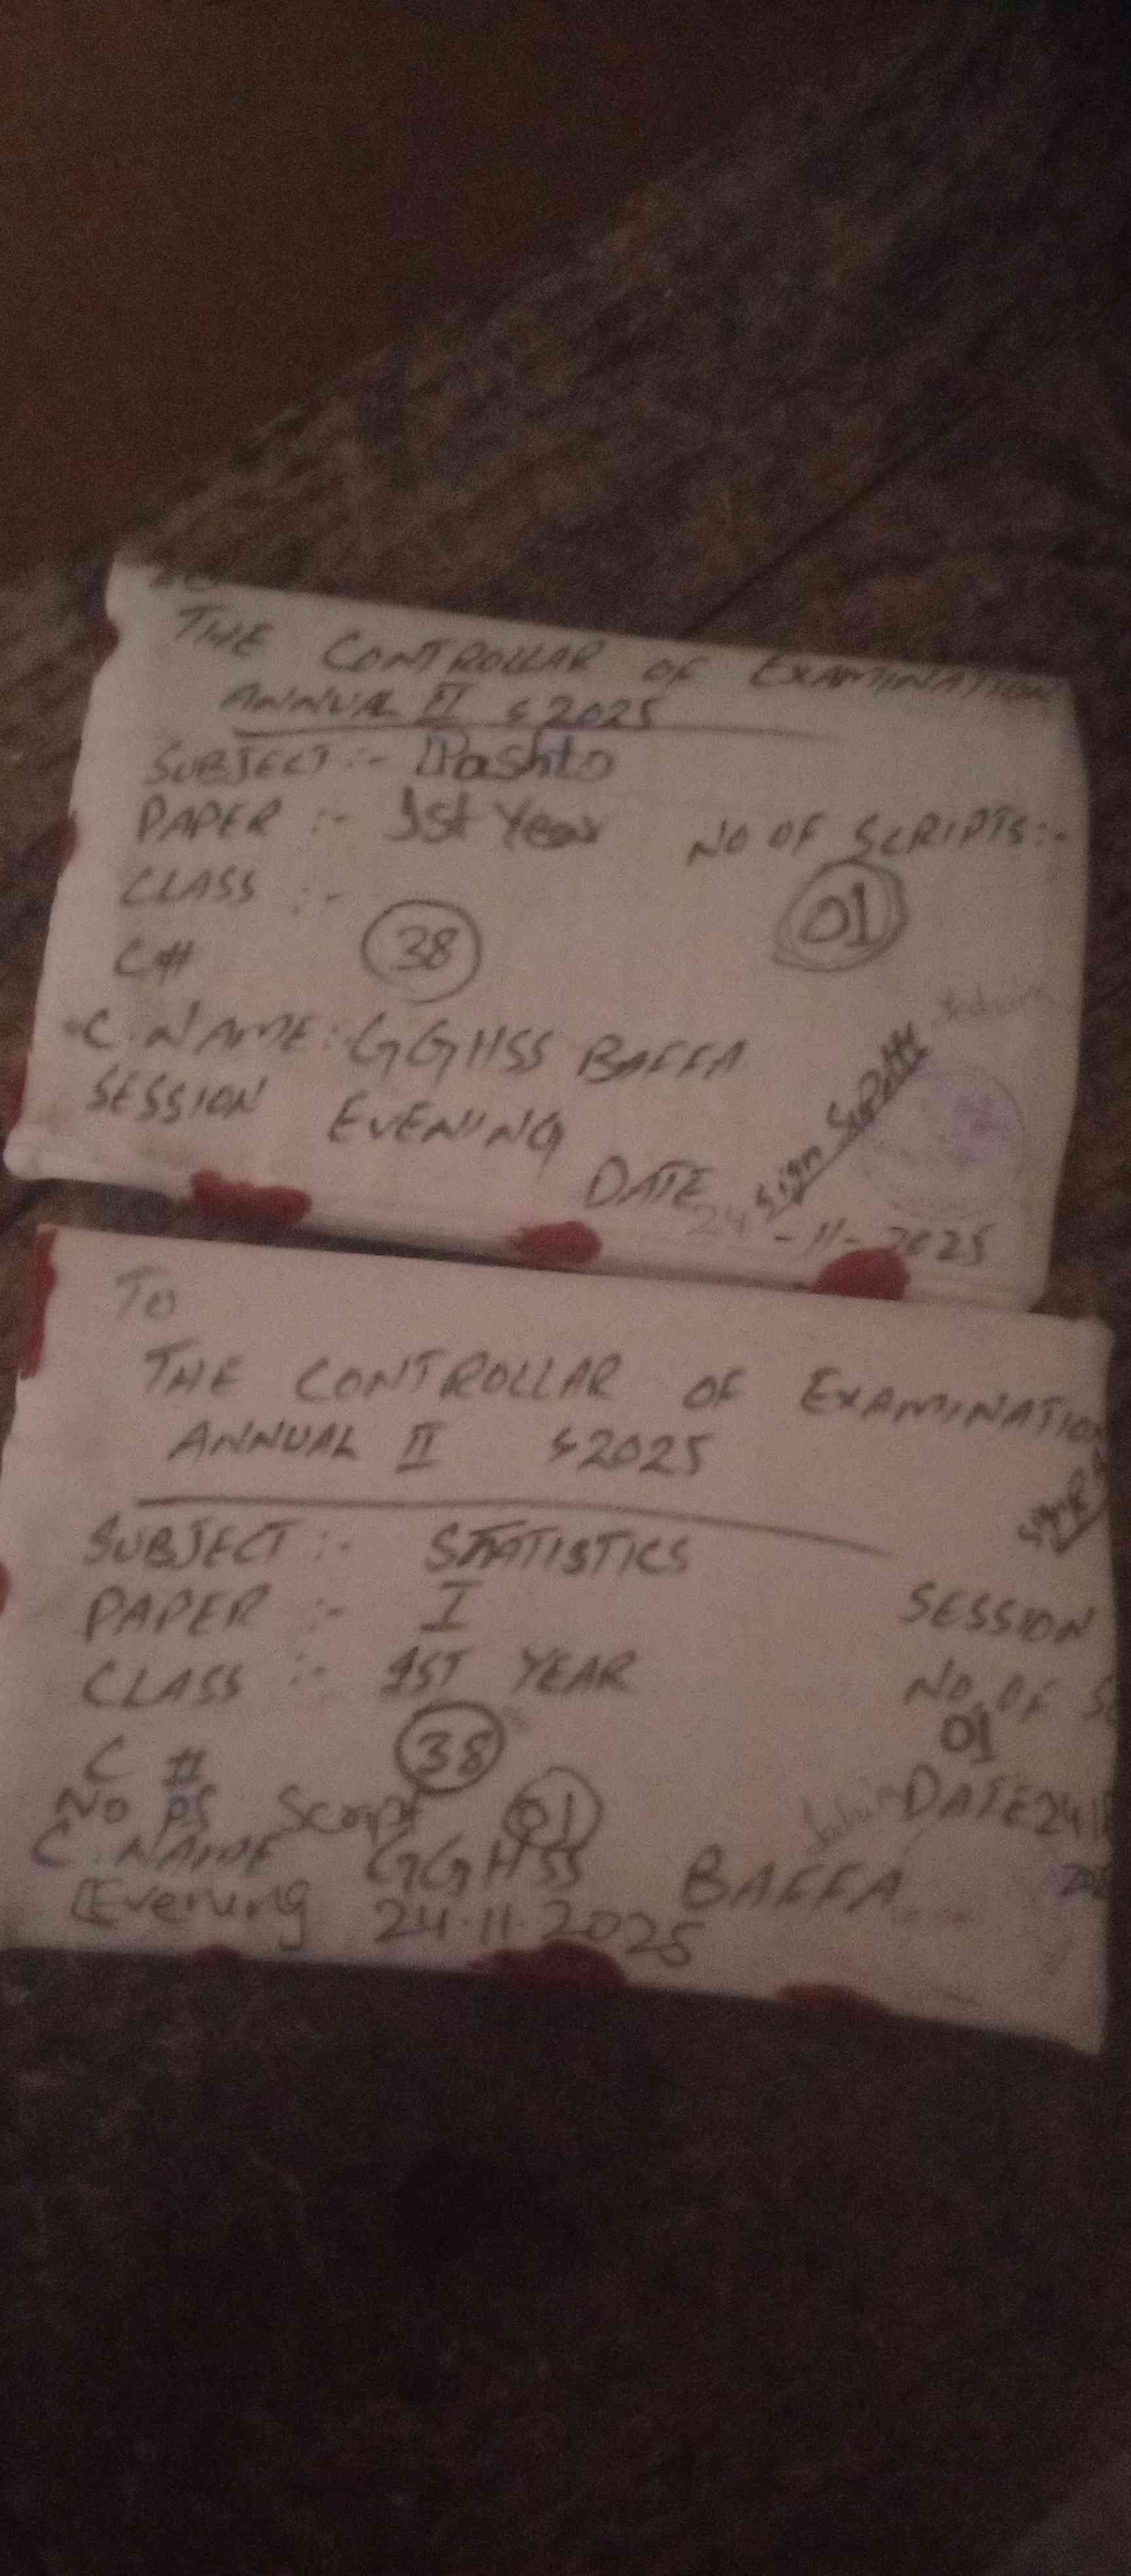 To
THE CONTROLLAR OF EXAMINATION
ANNUAL II S 2025
SUBJECT :- Pashto
PAPER :- 1st Year
NO OF SCRIPTS:-
01
CLASS :-
C# 38
C. NAME: GGHSS BAFFA
SESSION EVENING
Sign Supdtt
DATE 24-11-2025
To
THE CONTROLLAR OF EXAMINATION
ANNUAL II S 2025
SUBJECT :- STATISTICS
PAPER :- I
SESSION
CLASS :- 1ST YEAR
NO. OF
01
C # 38
DATE 24
No of Script 01
C. NAME GGHSS BAFFA
Evening 24.11.2025